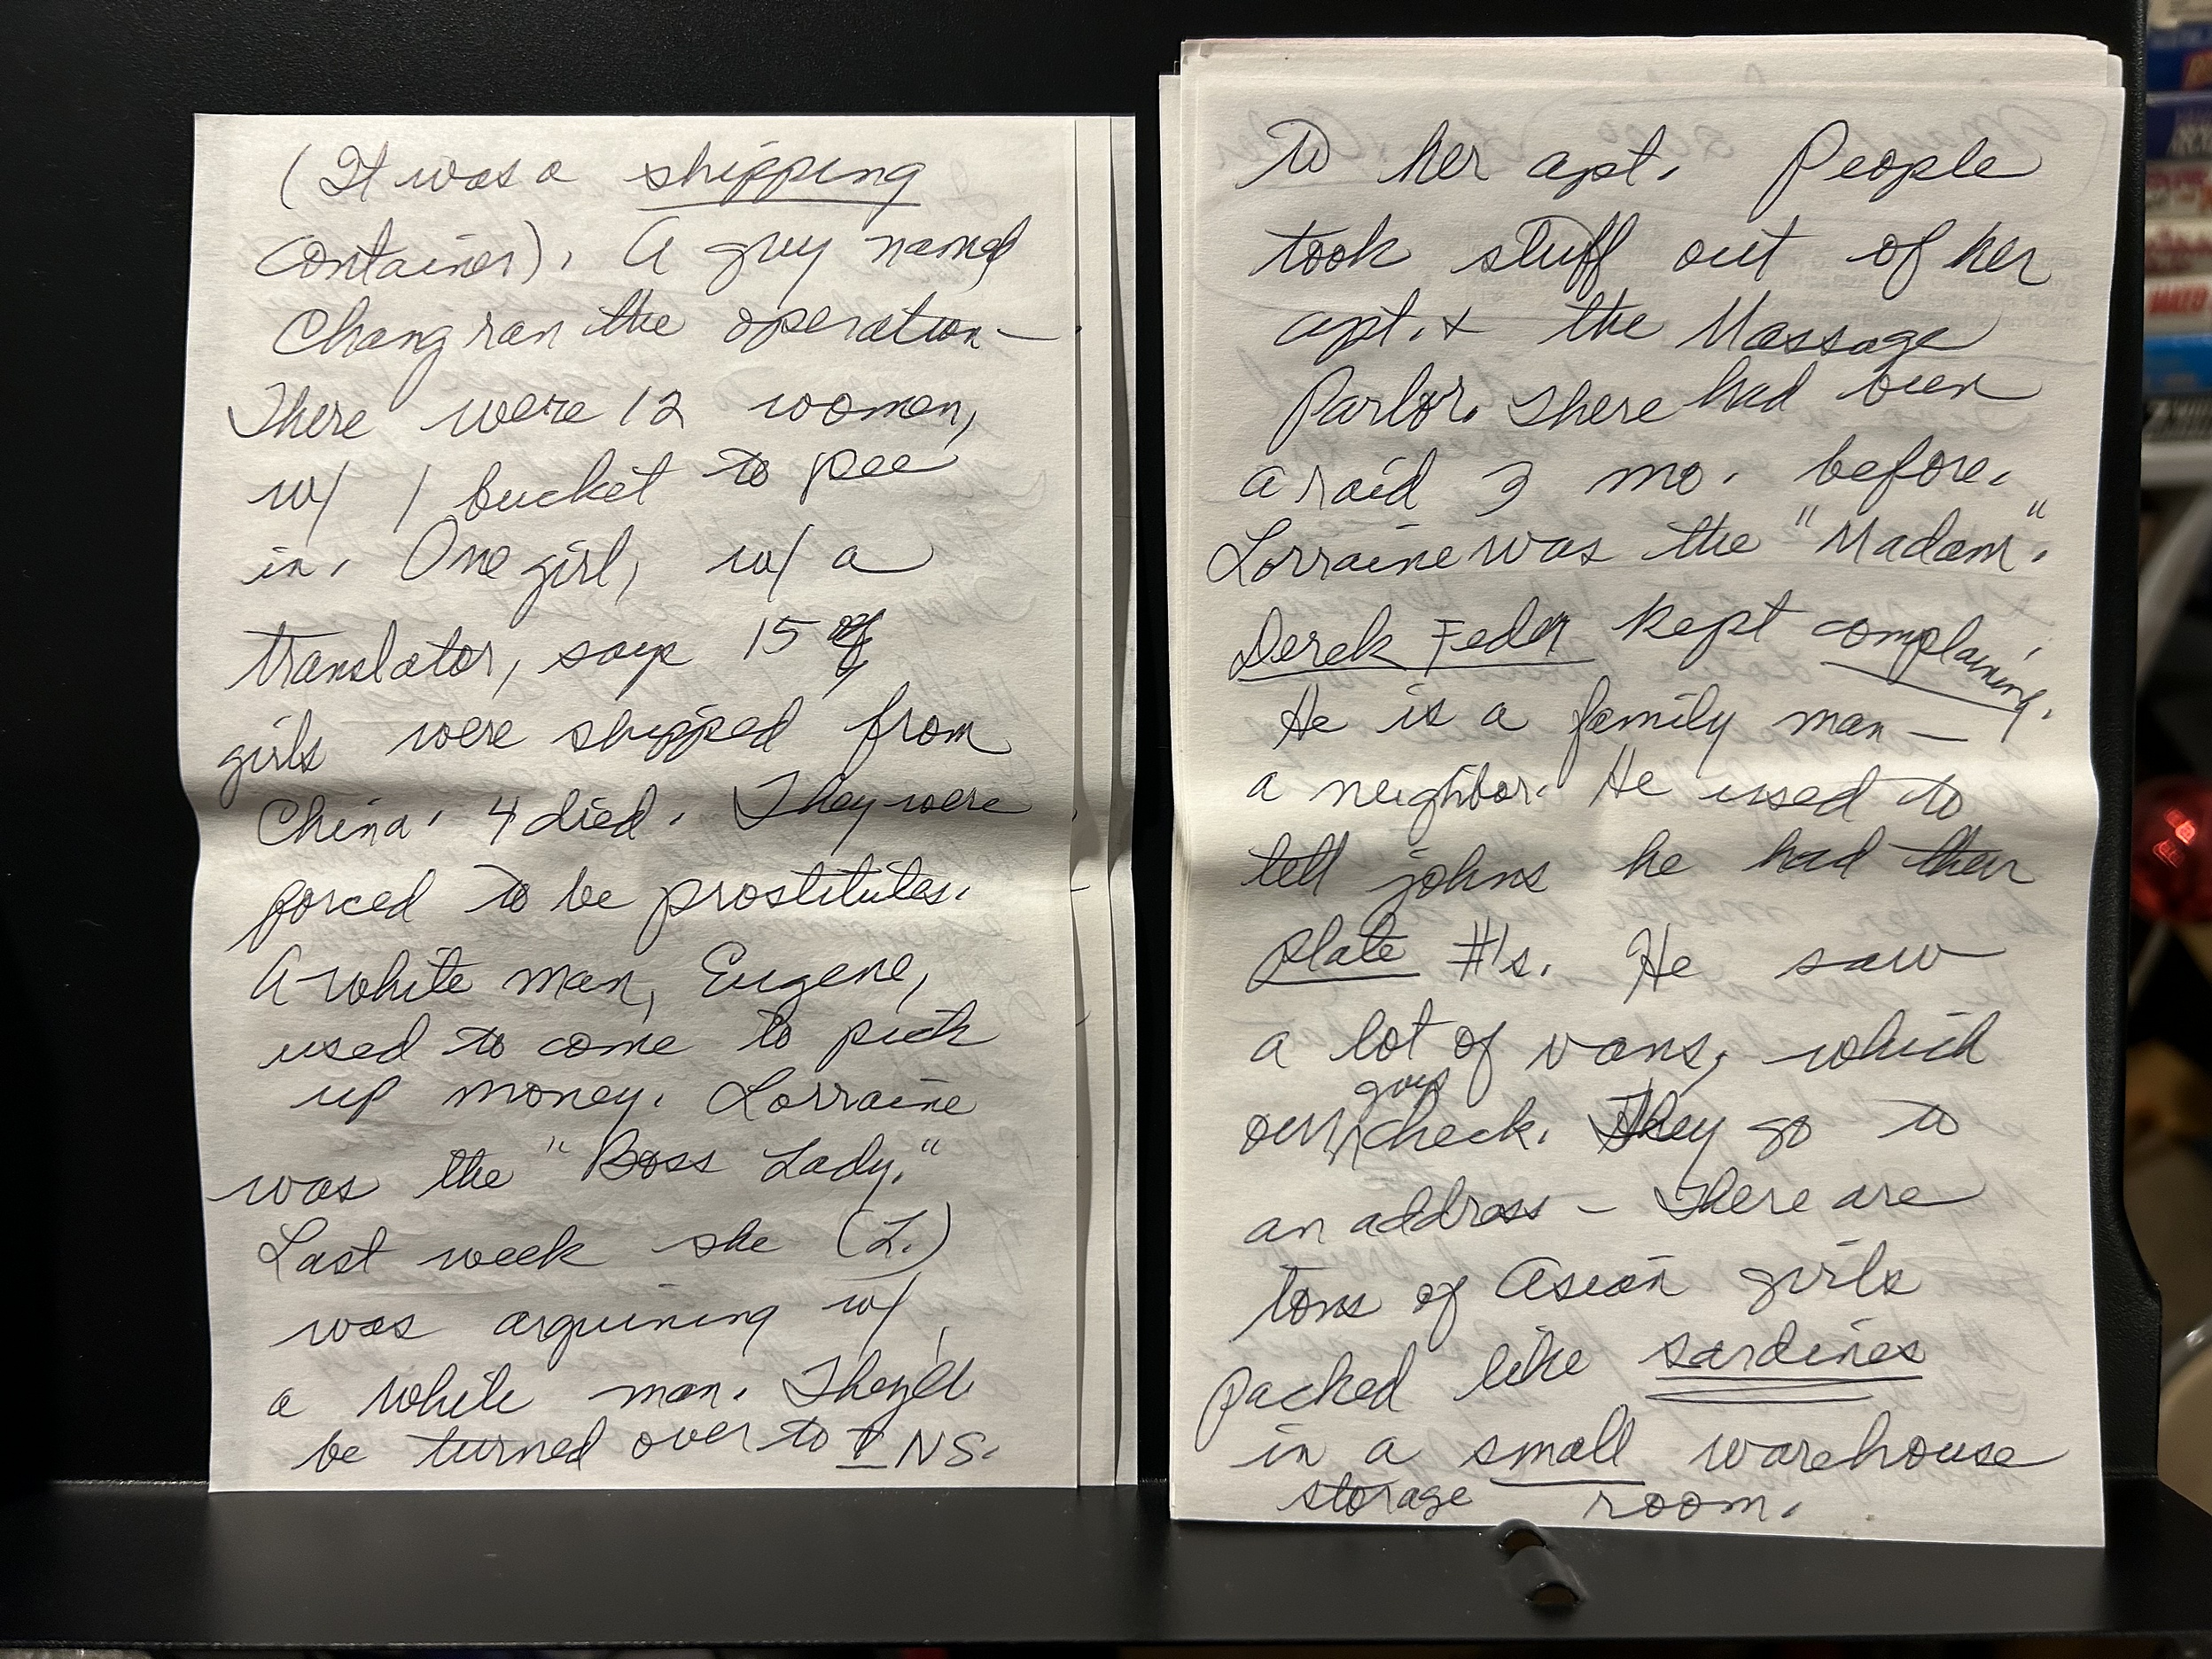 (It was a shipping
container). A guy named
Chang ran the operation—
There were 12 women,
w/ 1 bucket to pee
in. One girl, w/ a
translator, says 15
girls were shipped from
China. 4 died. They were
forced to be prostitutes.
A white man, Eugene,
used to come to pick
up money. Lorraine
was the "Boss Lady."
Last week she (L.)
was arguining w/
a white man. They'd
be turned over to INS.
to her apt. People
took stuff out of her
apt. + the Massage
Parlor. There had been
a raid 3 mo. before.
Lorraine was the "Madam".
Derek Feder kept complaining.
He is a family man—
a neighbor. He used to
tell johns he had their
plate #'s. He saw
a lot of vans, which
our guys check. They go to
an address – There are
tons of Asian girls
packed like sardines
in a small warehouse
storage room.